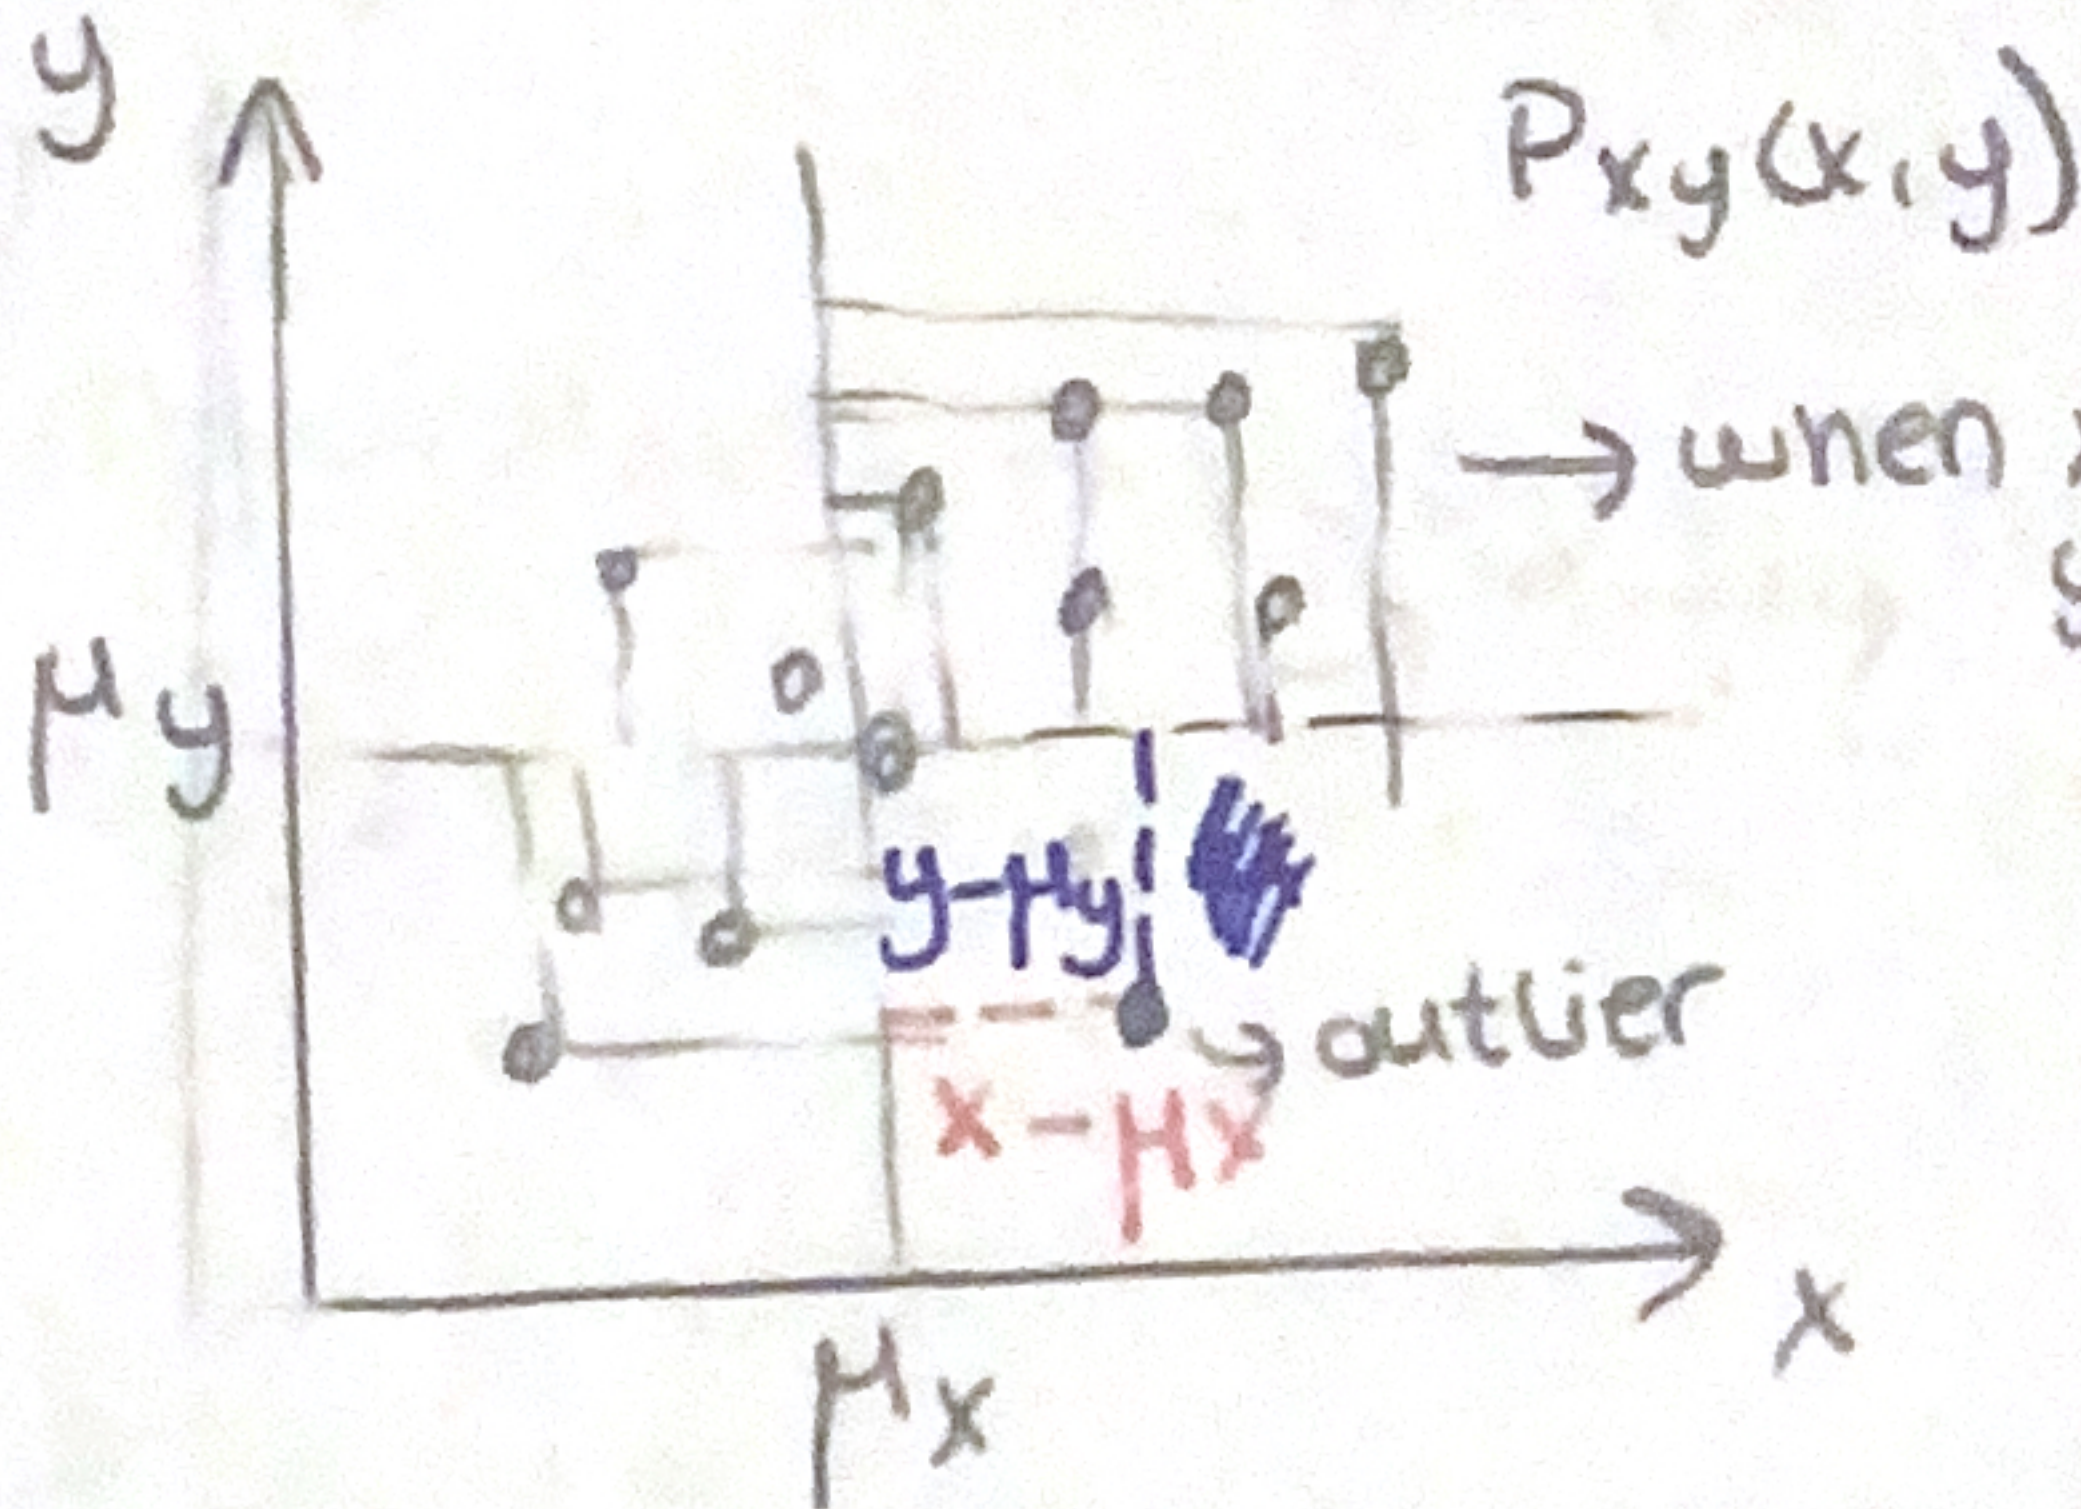 y
Pxy(x,y)
→ when
μy
y-μy
↪ outlier
x-μx
x
μx